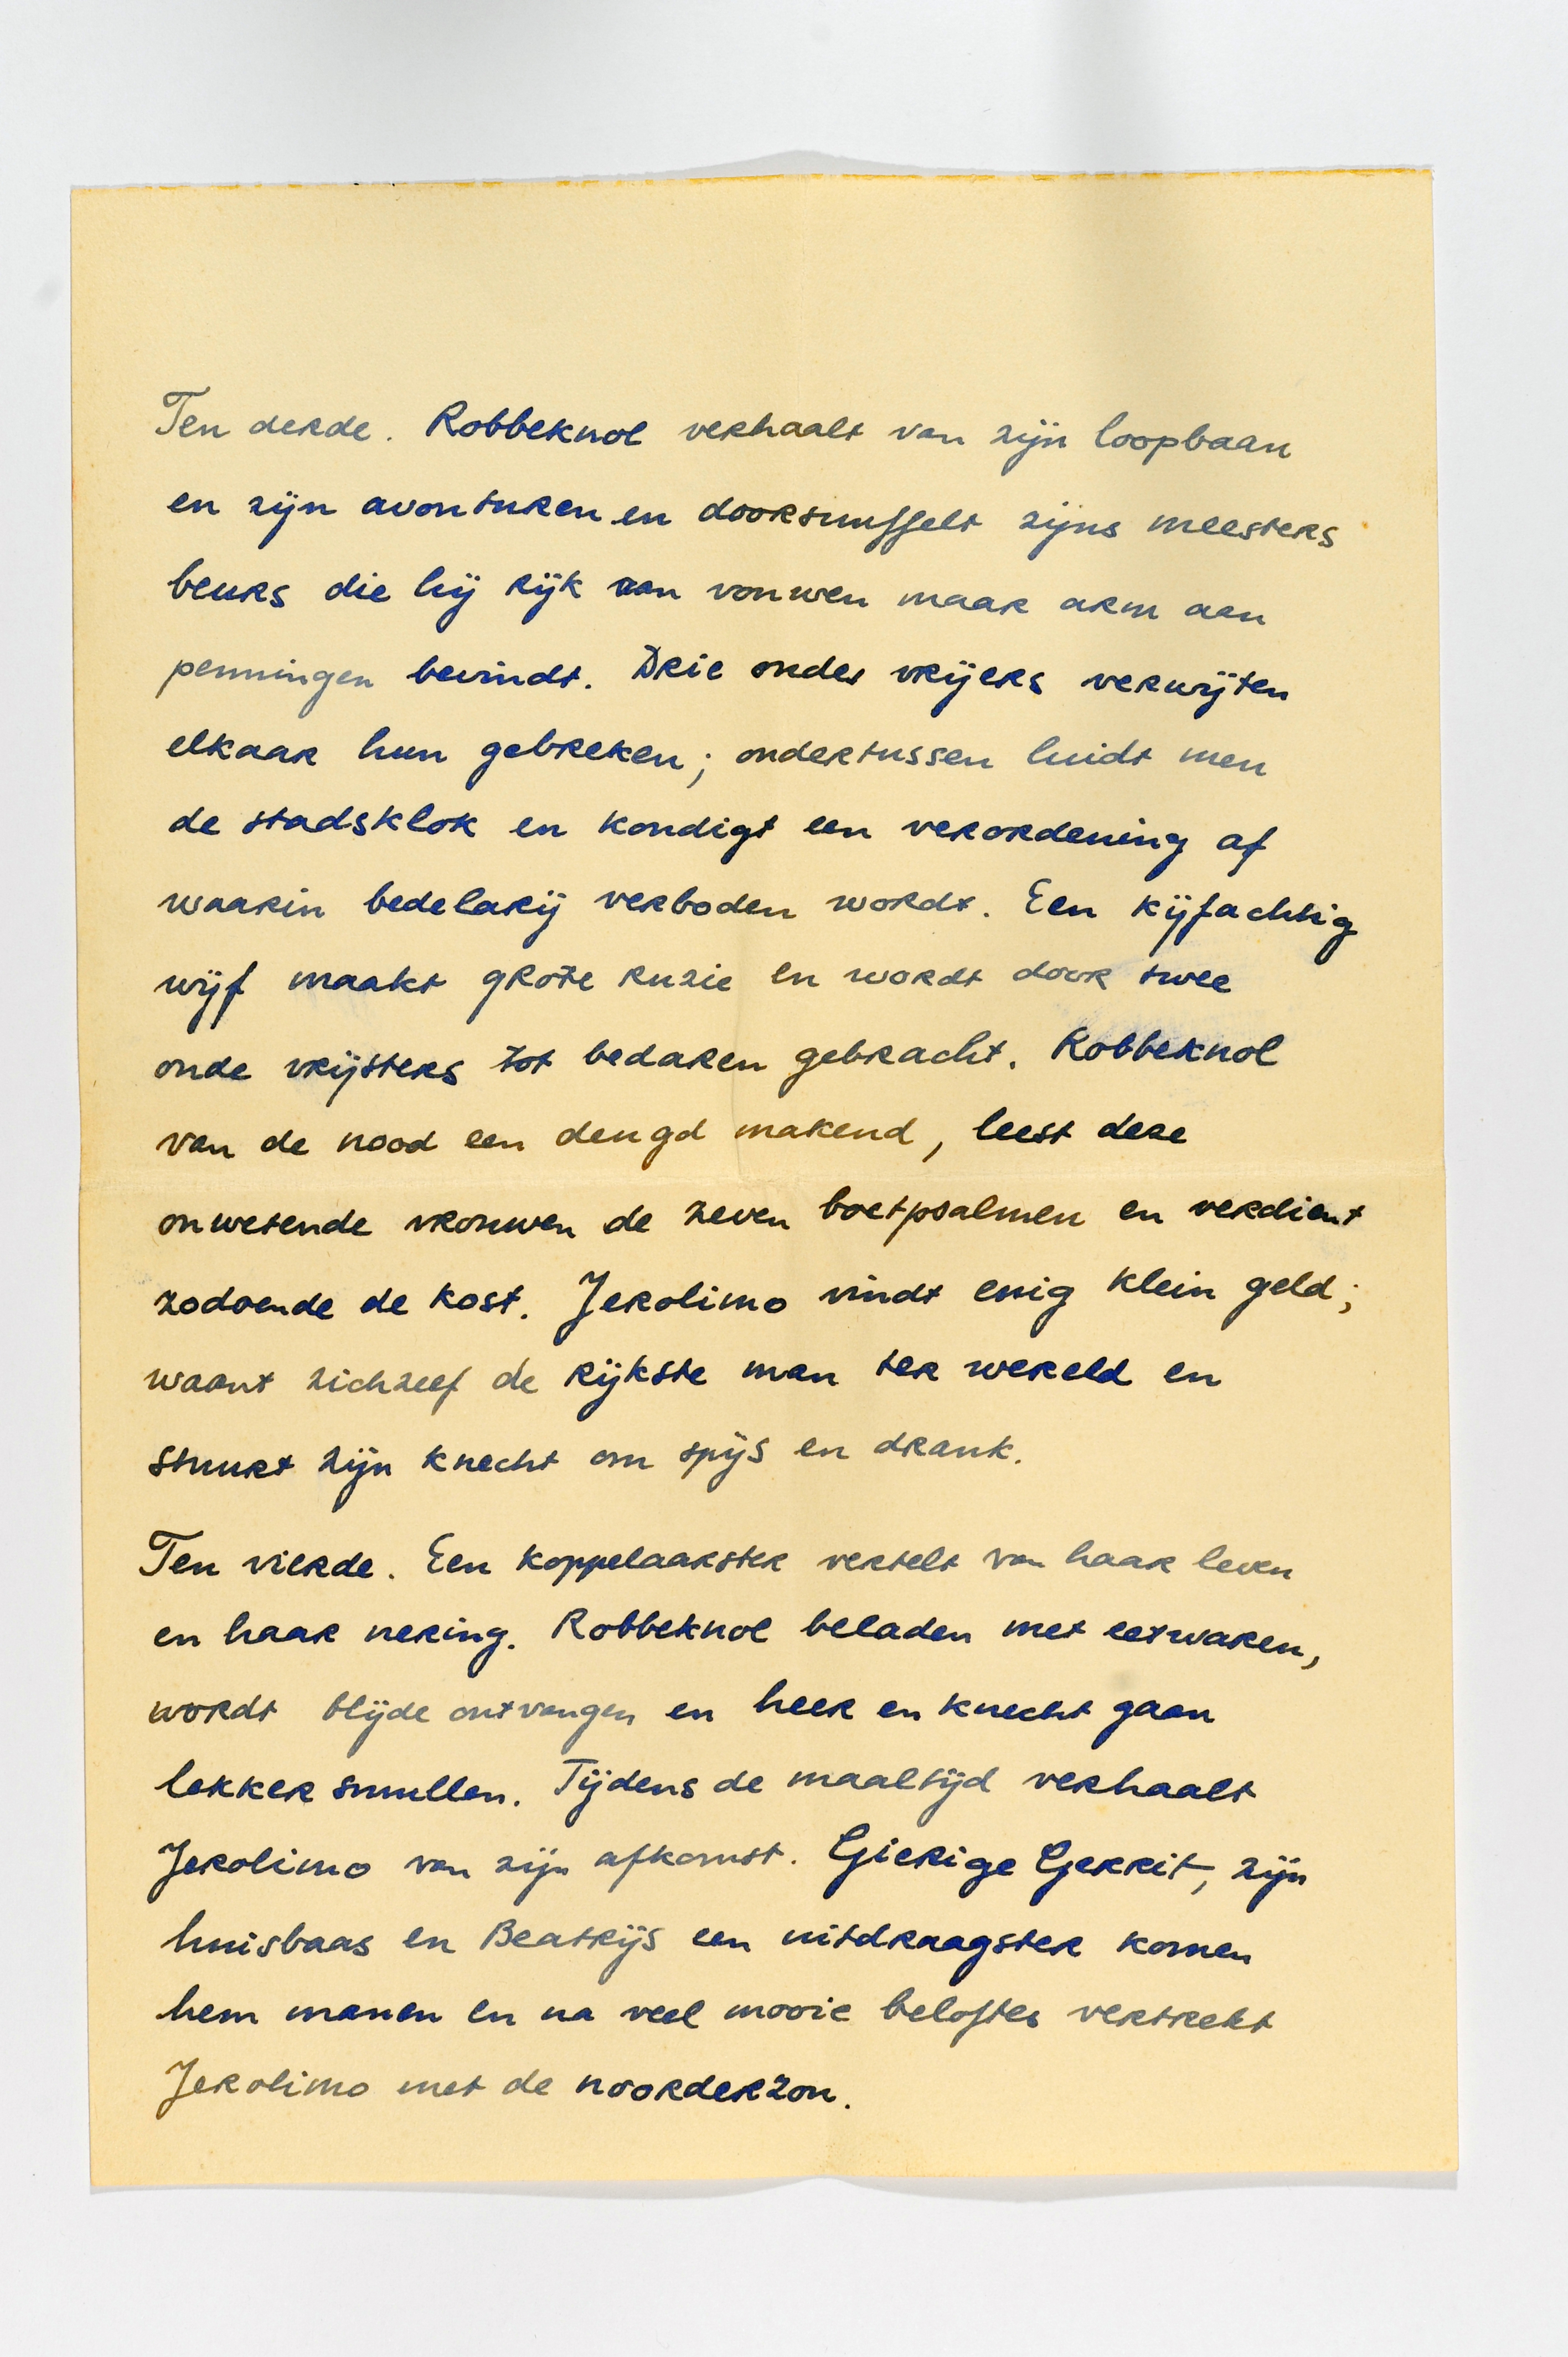 Ten derde. Robbeknol verhaalt van zijn loopbaan
en zijn avonturen en doorsnuffelt zijns meesters
beurs die hij rijk aan vouwen maar arm aan
penningen bevindt. Drie oudes vrijers verwijten
elkaar hun gebreken; ondertussen luidt men
de stadsklok en kondigt een verordening af
waarin bedelarij verboden wordt. Een kijfachtig
wijf maakt grote ruzie en wordt door twee
oude vrijsters tot bedaren gebracht. Robbeknol
van de nood een deugd makend, leest deze
onwetende vrouwen de zeven boetpsalmen en verdient
zodoende de kost. Jerolimo vindt enig klein geld;
waant zichzelf de rijkste man ter wereld en
stuurt zijn knecht om spijs en drank.
Ten vierde. Een koppelaarster vertelt van haar leven
en haar nering. Robbeknol beladen met eetwaren,
wordt blijde ontvangen en heer en knecht gaan
lekker smullen. Tijdens de maaltijd verhaalt
Jerolimo van zijn afkomst. Gierige Gerrit, zijn
huisbaas en Beatrijs een uitdraagster komen
hem manen en na veel mooie beloftes vertrekt
Jerolimo met de noorderzon.